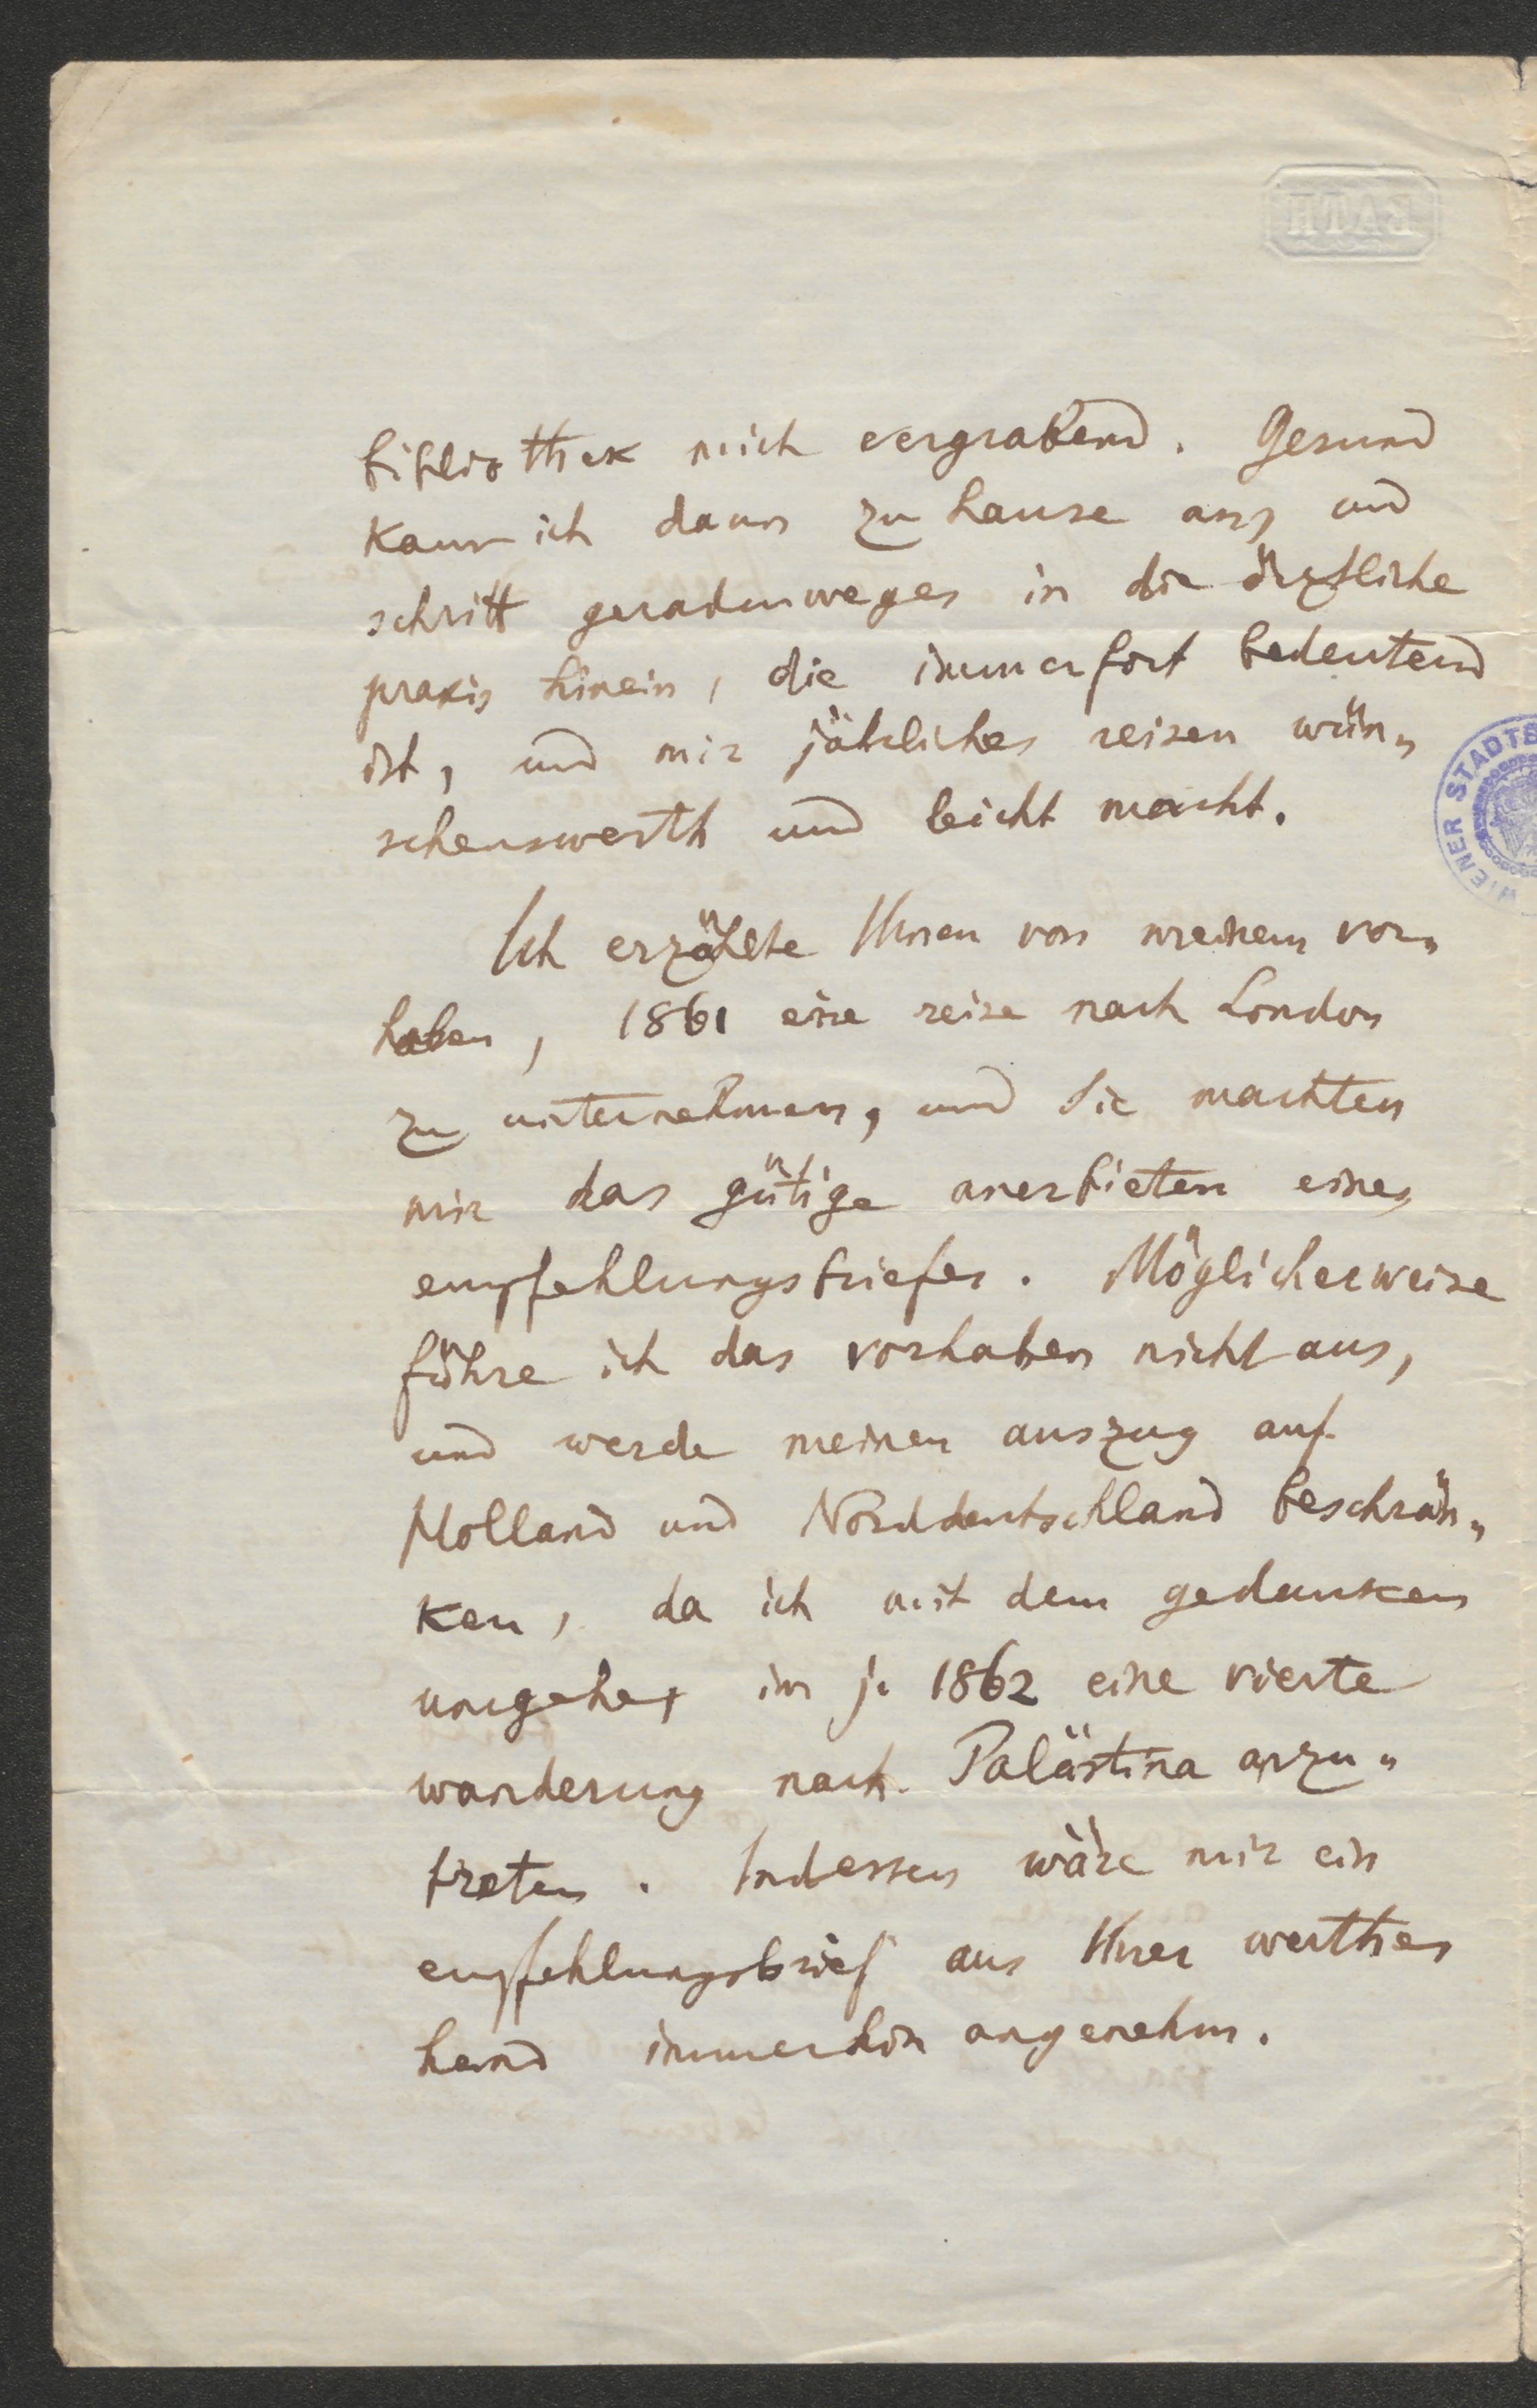 BATH
bibliothek mich vergrabend. Gesund
kam ich dann zu hause an, und
schritt geradenweges in die ärztliche
praxis hinein, die immerfort bedeutend
ist, und mir jährliches reisen wün„
schenswerth und leicht macht.
WIENER STADTB
Ich erzählte Ihnen von meinem vor„
haben, 1861 eine reise nach London
zu unternehmen, und Sie machten
mir das gütige anerbieten eines
empfehlungsbriefes. Möglicherweise
führe ich das vorhaben nicht aus,
und werde meinen auszug auf
Holland und Norddeutschland beschrän„
ken, da ich mit dem gedanken
umgehe, im j. 1862 eine vierte
wanderung nach Palästina anzu„
treten. Indessen wäre mir ein
empfehlungsbrief aus Ihrer werthen
hand immerhin angenehm.